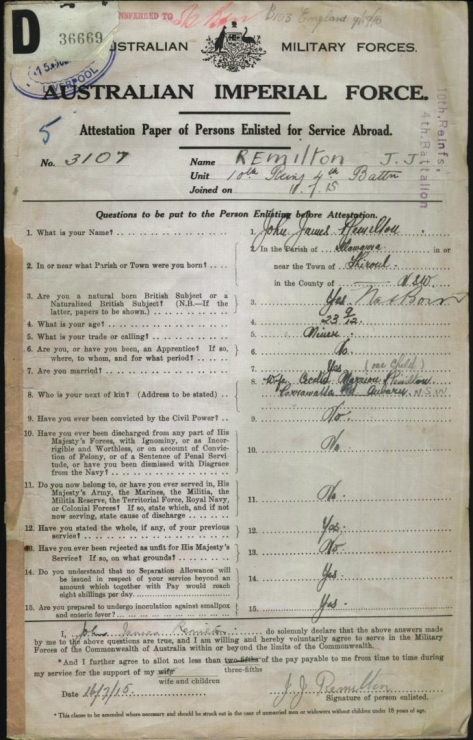 D
36669
TRANSFERRED TO
England
LIVERPOOL
AUSTRALIAN MILITARY FORCES.
AUSTRALIAN IMPERIAL FORCE.
10th Reinfs,
4th Battalion
5
Attestation Paper of Persons Enlisted for Service Abroad.
No. 3107 Name REMILTON J. J.
Unit 10th Reinf 4th Battn
Joined on
Questions to be put to the Person Enlisting before Attestation.
1. What is your Name? 1. John James Remilton
2. In or near what Parish or Town were you born? 2. In the Parish of in or
near the Town of Thirroul
in the County of N.S.W.
3. Are you a natural born British Subject or a
Naturalized British Subject? (N.B.—If the
latter, papers to be shown.) 3. Yes Nat Born
4. What is your age? 4. 23 9/12
5. What is your trade or calling? 5. Miner
6. Are you, or have you been, an Apprentice? If so,
where, to whom, and for what period? 6. No
7. Are you married? 7. Yes (one child)
8. Who is your next of kin? (Address to be stated) 8. Wife Remilton
N.S.W
9. Have you ever been convicted by the Civil Power? 9. No.
10. Have you ever been discharged from any part of His
Majesty's Forces, with Ignominy, or as Incor-
rigible and Worthless, or on account of Convic-
tion of Felony, or of a Sentence of Penal Servi-
tude, or have you been Dismissed with Disgrace
from the Navy? 10. No.
11. Do you now belong to, or have you ever served in, His
Majesty's Army, the Marines, the Militia, the
Militia Reserve, the Territorial Force, Royal Navy,
or Colonial Forces? If so, state which, and if not
now serving, state cause of discharge 11. No.
12. Have you stated the whole, if any, of your previous
service? 12. Yes.
13. Have you ever been rejected as unfit for His Majesty's
Service? If so, on what grounds? 13. No
14. Do you understand that no Separation Allowance will
be issued in respect of your service beyond an
amount which together with Pay would reach
eight shillings per day 14. Yes.
15. Are you prepared to undergo inoculation against smallpox
and enteric fever? 15. Yes.
I, John James Remilton do solemnly declare that the above answers made
by me to the above questions are true, and I am willing and hereby voluntarily agree to serve in the Military
Forces of the Commonwealth of Australia within or beyond the limits of the Commonwealth.
*And I further agree to allot not less than two-fifths of the pay payable to me from time to time during
three-fifths
my service for the support of my wife
wife and children
Date 16/7/15. J. J. Remilton
Signature of person enlisted.
* This clause to be amended where necessary and should be struck out in the case of unmarried men or widowers without children under 18 years of age.